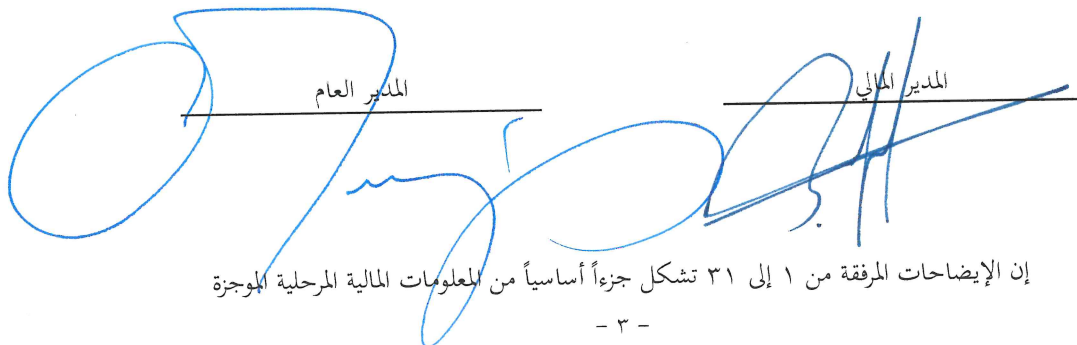 المدير المالي
المدير العام
إن الإيضاحات المرفقة من ١ إلى ٣١ تشكل جزءاً أساسياً من المعلومات المالية المرحلية الموجزة
- ٣ -